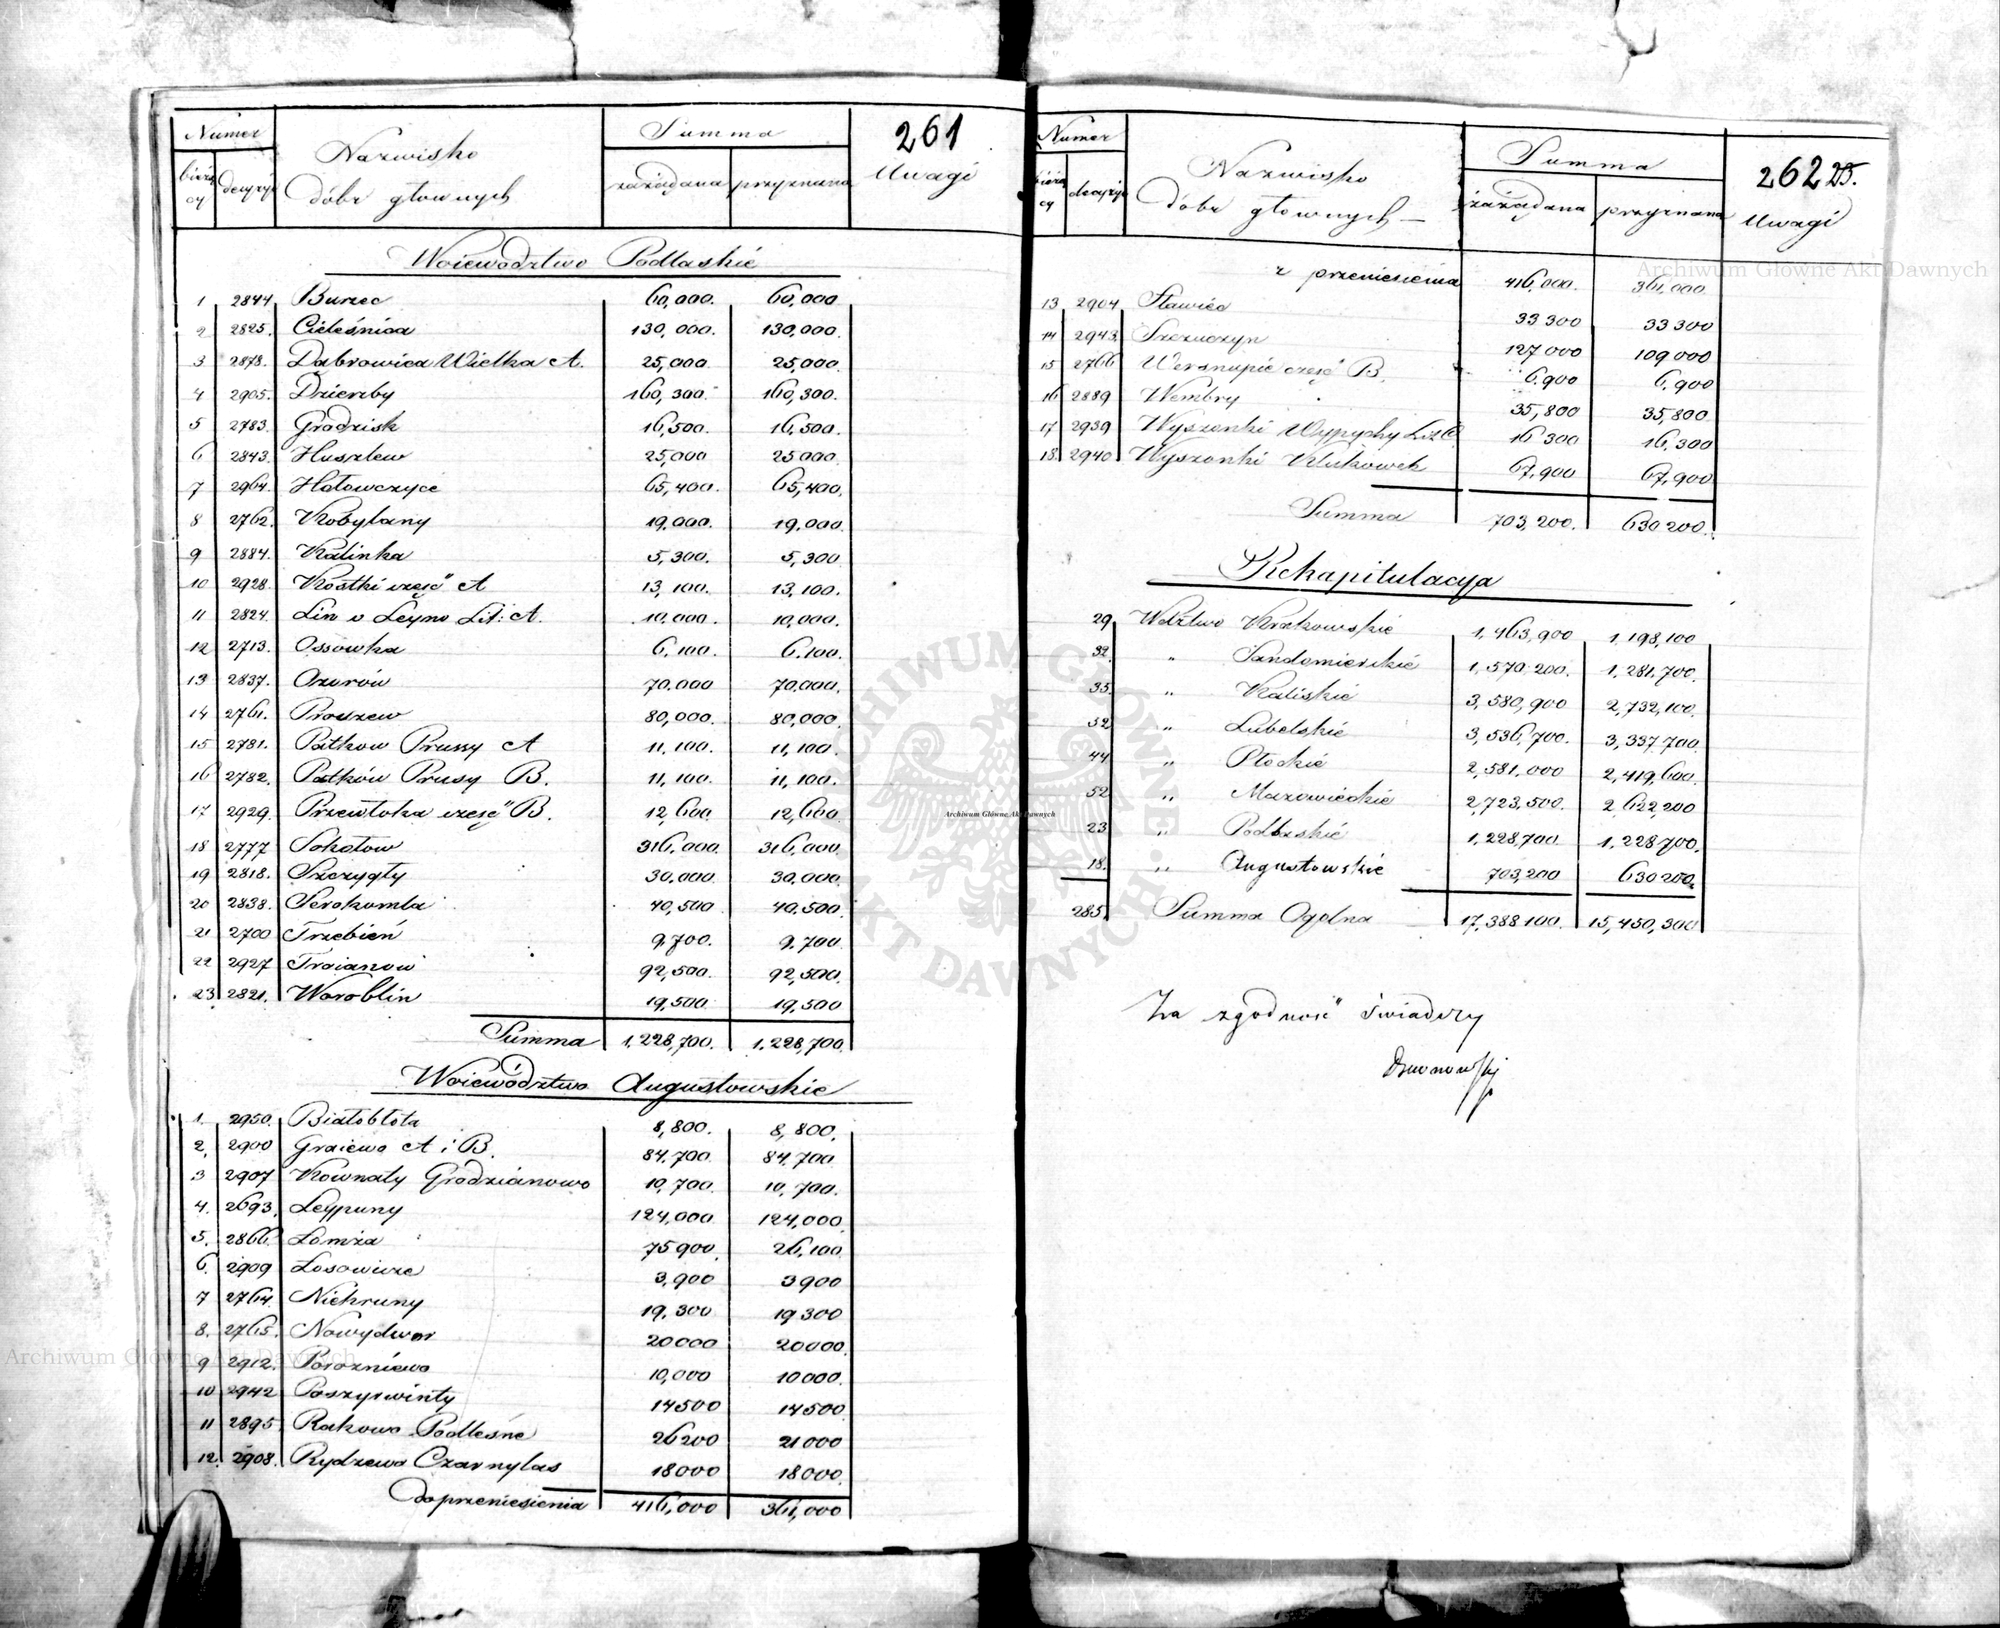 Numer
Nazwisko
dóbr głownych
Summa
261
bieżący
decyzyi
zażądana
przyznana
Uwagi
Woiewodztwo Podlaskie
1 2844 Burzec 60,000. 60,000
2 2825. Cieleśnica 130,000. 130,000.
3 2878. Dąbrowica Wielka A. 25,000 25,000.
4 2905. Dzierzby 160,300. 160,300.
5 2783. Grodzisk 16,500. 16,500.
6 2843. Huszlew 25,000 25000.
7 2964. Hołowczyce 65,400. 65,400.
8 2762. Kobylany 19,000. 19,000.
9 2884. Kalinka 5,300. 5,300
10 2928. Kostki część A 13,100. 13,100.
11 2824. Lin v Leyno Lit: A. 10,000. 10,000.
12 2713. Ossowka 6.100. 6.100.
13 2837. Ozorów 70,000 70,000.
14 2761. Proszew 80,000. 80,000.
15 2781. Patkow Prussy A 11,100. 11,100.
16 2782. Patków Prusy B. 11,100. 11,100.
17 2929. Przewłoka część B. 12,600. 12,600.
18 2777 Sokołow 316,000. 316,000.
19 2818. Szczygły 30,000. 30,000.
20 2838. Serokomla 40,500 40,500.
21 2700 Trzebień 9,700. 9,700
22 2927 Troianow 92,500. 92,500.
23 2821. Woroblin 19,500 19,500
Summa 1,228,700. 1,228,700.
Woiewództwo Augustowskie
1. 2950. Białobłota 8,800. 8,800.
2. 2900 Graiewo A i B. 84,700 84,700
3 2907 Kownaty Grodzianowo 10,700. 10,700.
4. 2693. Leypuny 124,000 124,000.
5. 2866 Łomża 75900. 26,100
6. 2909 Łosowicze 3,900 3900
7 2764 Niekruny 19,300 19300
8. 2765. Nowydwor 20000 20000.
9 2912. Porozniewo 10,000 10000.
10 2942 Poszyrwinty 14500 14500
11 2895 Rakowo Podleśne 26200 21000
12. 2908. Rydzewo Czarnylas 18000 18000
do przeniesienia 416,000 361,000
Numer
Nazwisko
dóbr głownych
Summa
262 25.
bieżący
decyzyi
zażądana
przyznana
Uwagi
z przeniesienia 416,000. 361,000.
13 2904 Sławiec 33300 33300
14 2943. Szczuczyn 127000 109000
15 2766 Wersnupie część B. 6.900 6,900
16 2889 Wembry 35,800 35,800
17 2939 Wyszonki Wypychy Lit C. 16300 16,300
18. 2940 Wyszonki Klukowek 67,900 67,900
Summa 703,200. 630200.
Rekapitulacya
29 Wdztwo Krakowskie 1,463,900 1,198,100
32. „ Sandomierskie 1,570,200. 1,281,700.
35. „ Kaliskie 3,580,900 2,732,100.
52 „ Lubelskie 3,536,700. 3,337700.
44 „ Płockie 2,581,000 2,419,600.
52 „ Mazowieckie 2,723,500. 2622,200
23 „ Podlaskie 1,228,700. 1,228700.
18. „ Augustowskie 703,200 630200.
285. Summa Ogolna 17,388100. 15,450,300
Za zgodność świadczy
Archiwum Główne Akt Dawnych
Archiwum Główne Akt Dawnych
Archiwum Główne Akt Dawnych
ARCHIWUM GŁÓWNE AKT DAWNYCH